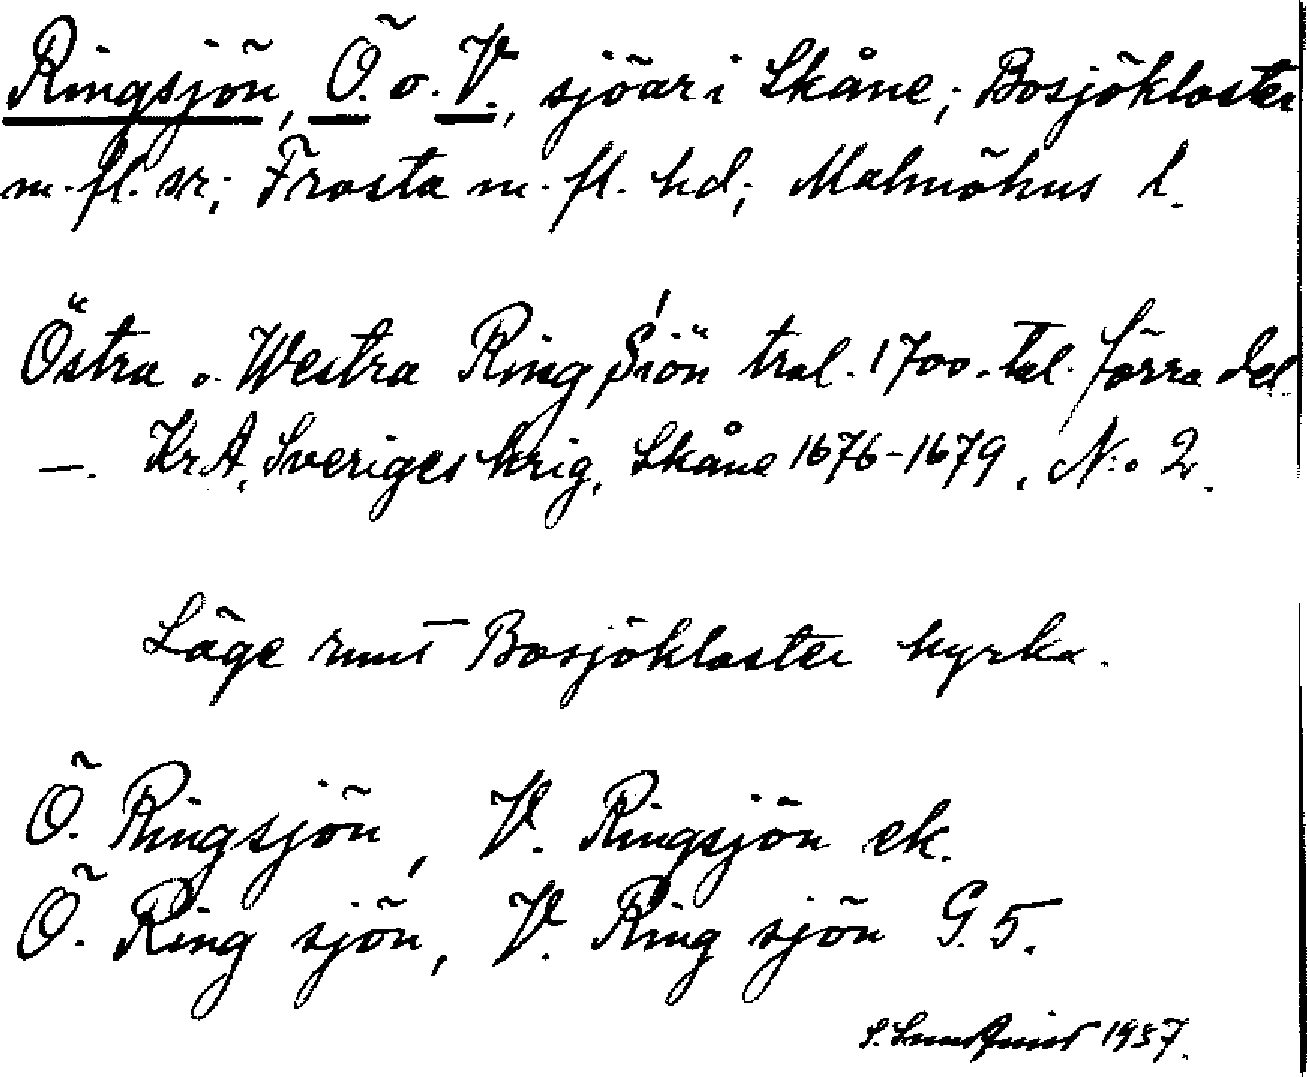 Ringsjön, Ö. o. V., sjöar i Skåne; Bosjökloster
m. fl. sr; Frosta m. fl. hd; Malmöhus l.
Östra o. Westra Ring Siön tral. 1700-tal. förra del
—. KrA, Sveriges krig, Skåne 1676-1679, N:o 2.
Läge runt Bosjökloster kyrka.
Ö. Ringsjön, V. Ringsjön ek.
Ö. Ring sjön, V. Ring sjön G. 5.
1937.